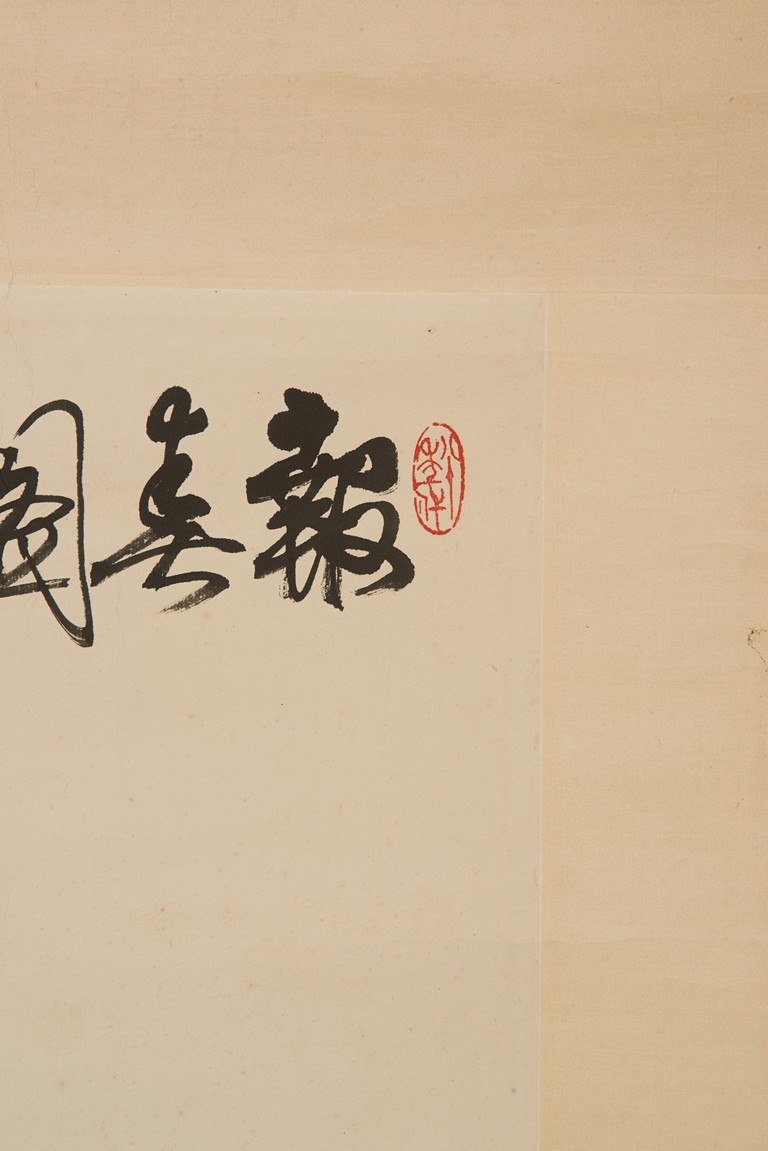 報春圖